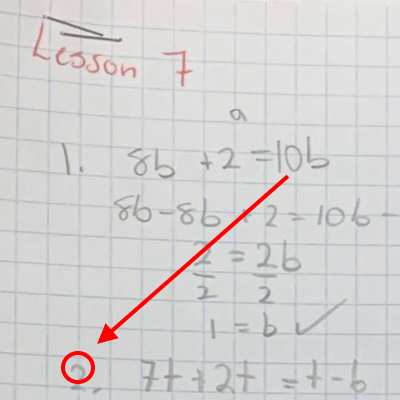 Lesson 7
a
1. 8b + 2 = 10b
8b - 8b + 2 = 10b -
2/2 = 2b/2
1 = b ✓
2. 7t + 2t = t - 6